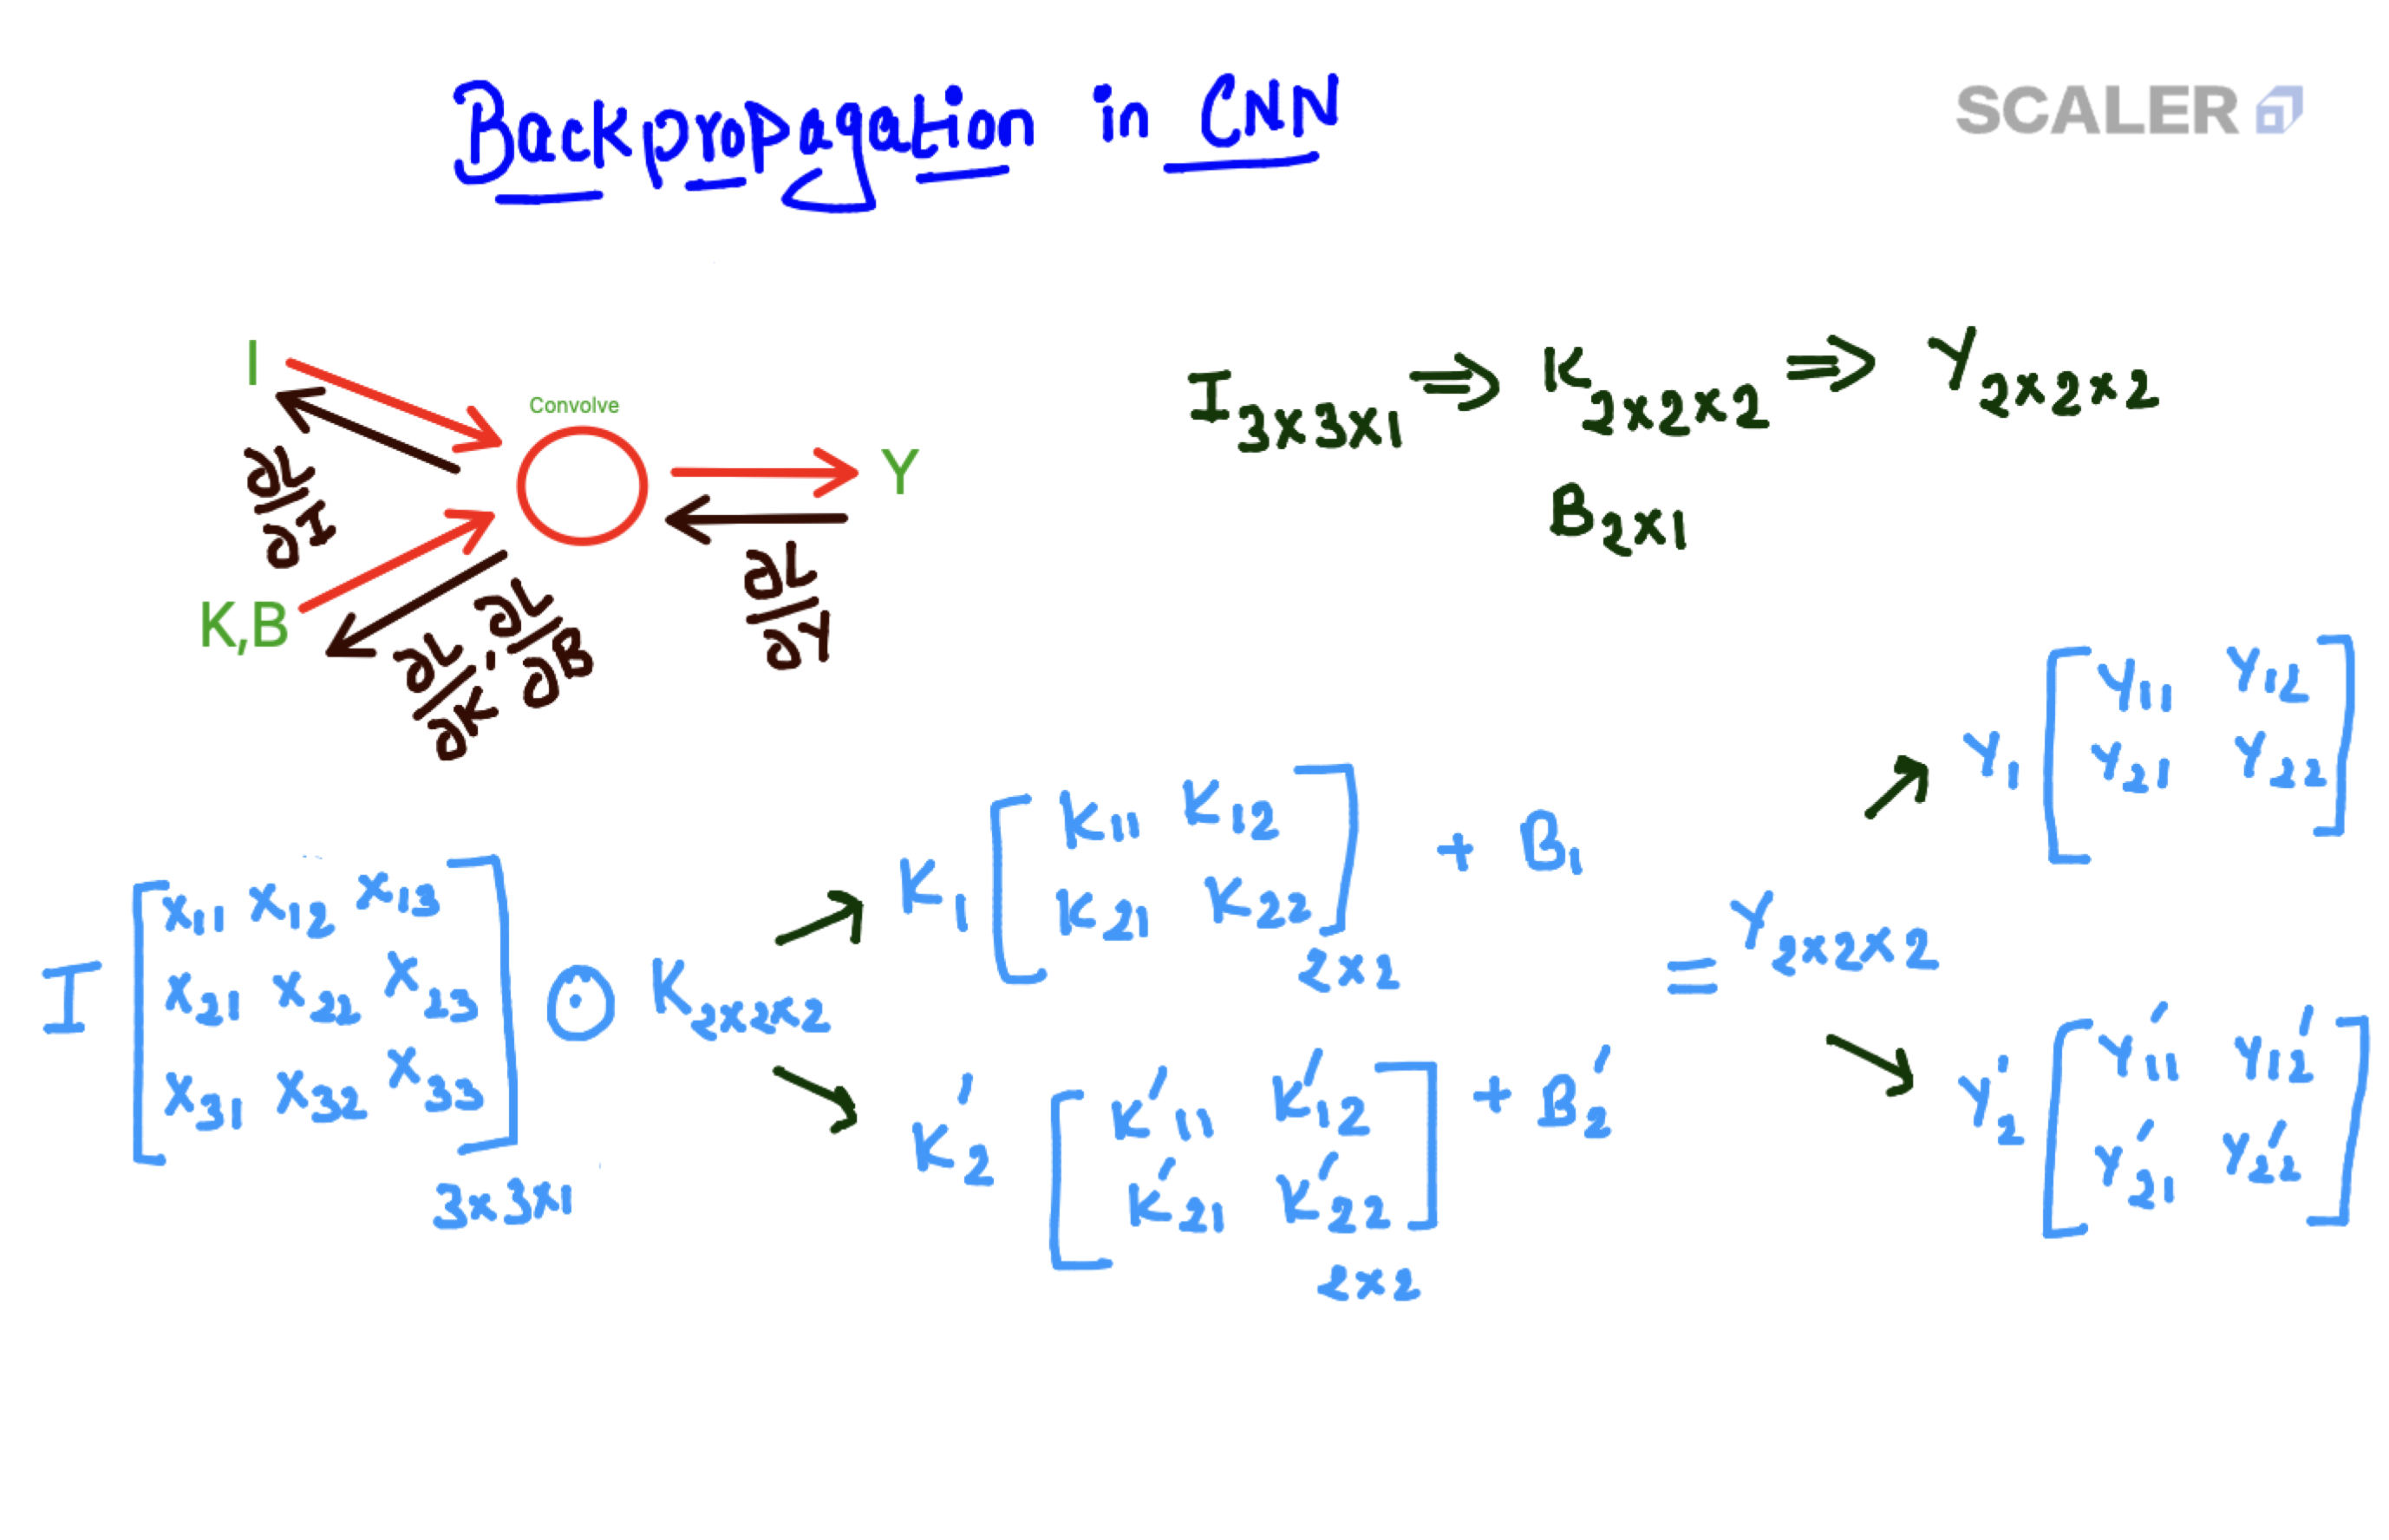 Backpropagation in CNN
SCALER
I
Convolve
Y
K,B
∂L/∂I
∂L/∂K, ∂L/∂B
∂L/∂Y
I3x3x1 ⇒ K2x2x2 ⇒ Y2x2x2
B2x1
I [X11 X12 X13
X21 X22 X23
X31 X32 X33] 3x3x1
⊙ K2x2x2
K1 [K11 K12
K21 K22] 2x2 + B1
K'2 [K'11 K'12
K'21 K'22] 2x2 + B'2
= Y2x2x2
Y1 [Y11 Y12
Y21 Y22]
Y'2 [Y'11 Y'12
Y'21 Y'22]